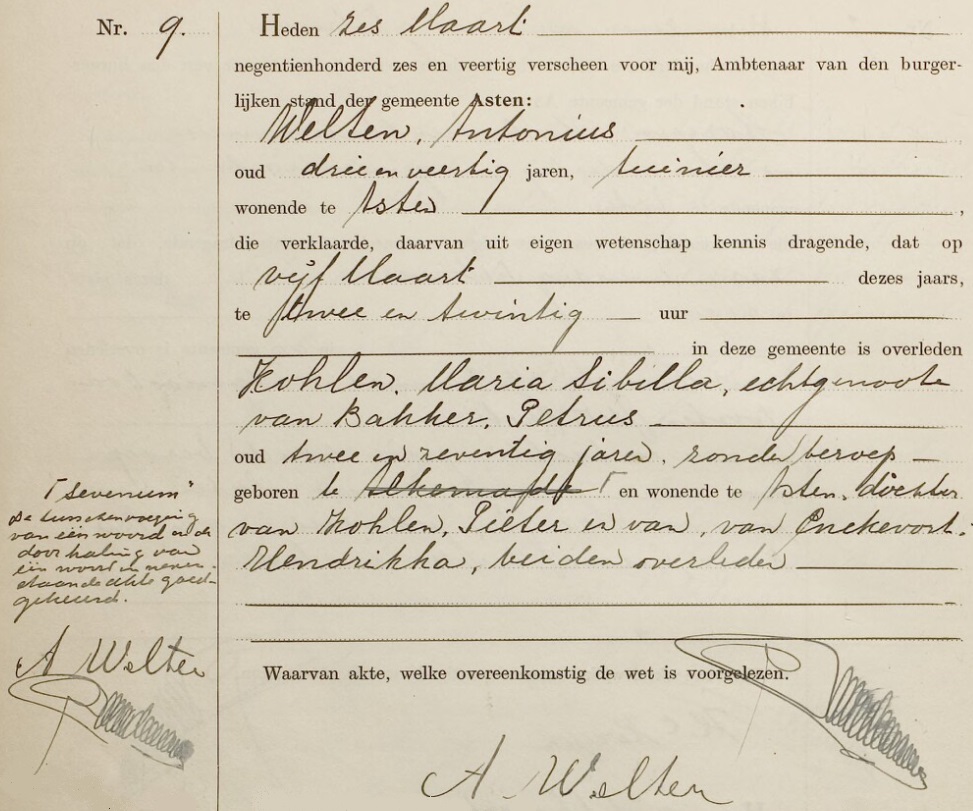 Nr. 9.
Heden zes Maart
negentienhonderd zes en veertig verscheen voor mij, Ambtenaar van den burger-
lijken stand der gemeente Asten:
Welten, Antonius
oud drie en veertig jaren, tuinier
wonende te Asten ,
die verklaarde, daarvan uit eigen wetenschap kennis dragende, dat op
vijf Maart dezes jaars,
te twee en twintig uur
in deze gemeente is overleden
Kohlen, Maria Sibilla, echtgenoote
van Bakker, Petrus
oud twee en zeventig jaren, zonder beroep
geboren te Alkemade en wonende te Asten, dochter
van Kohlen, Pieter en van, van Enckevort,
Hendrikka, beiden overleden
Waarvan akte, welke overeenkomstig de wet is voorgelezen.
A Welten
"Sevenum"
De tusschenvoeging
van één woord en de
doorhaling van
één woord in neven-
staande akte goed-
gekeurd.
A Welten